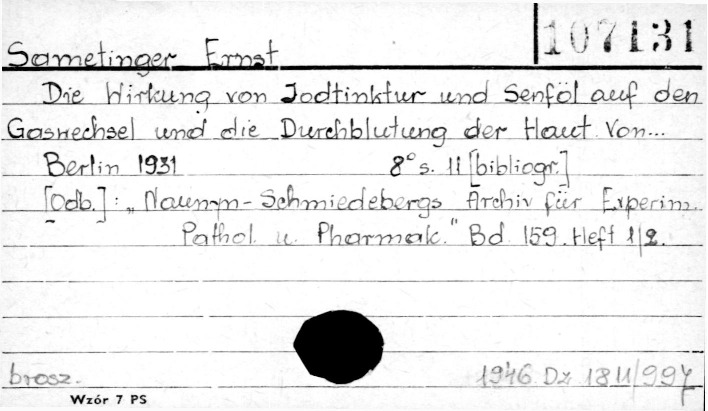 107131
Sametinger Ernst
Die Wirkung von Jodtinktur und Senföl auf den
Gaswechsel und die Durchblutung der Haut. Von...
Berlin 1931 8° s. 11 [bibliogr.]
[Odb.]: „Naunyn-Schmiedebergs Archiv für Experim.
Pathol. u. Pharmak." Bd. 159. Heft 1/2.
brosz. 1946 Dz 1811/997
Wzór 7 PS